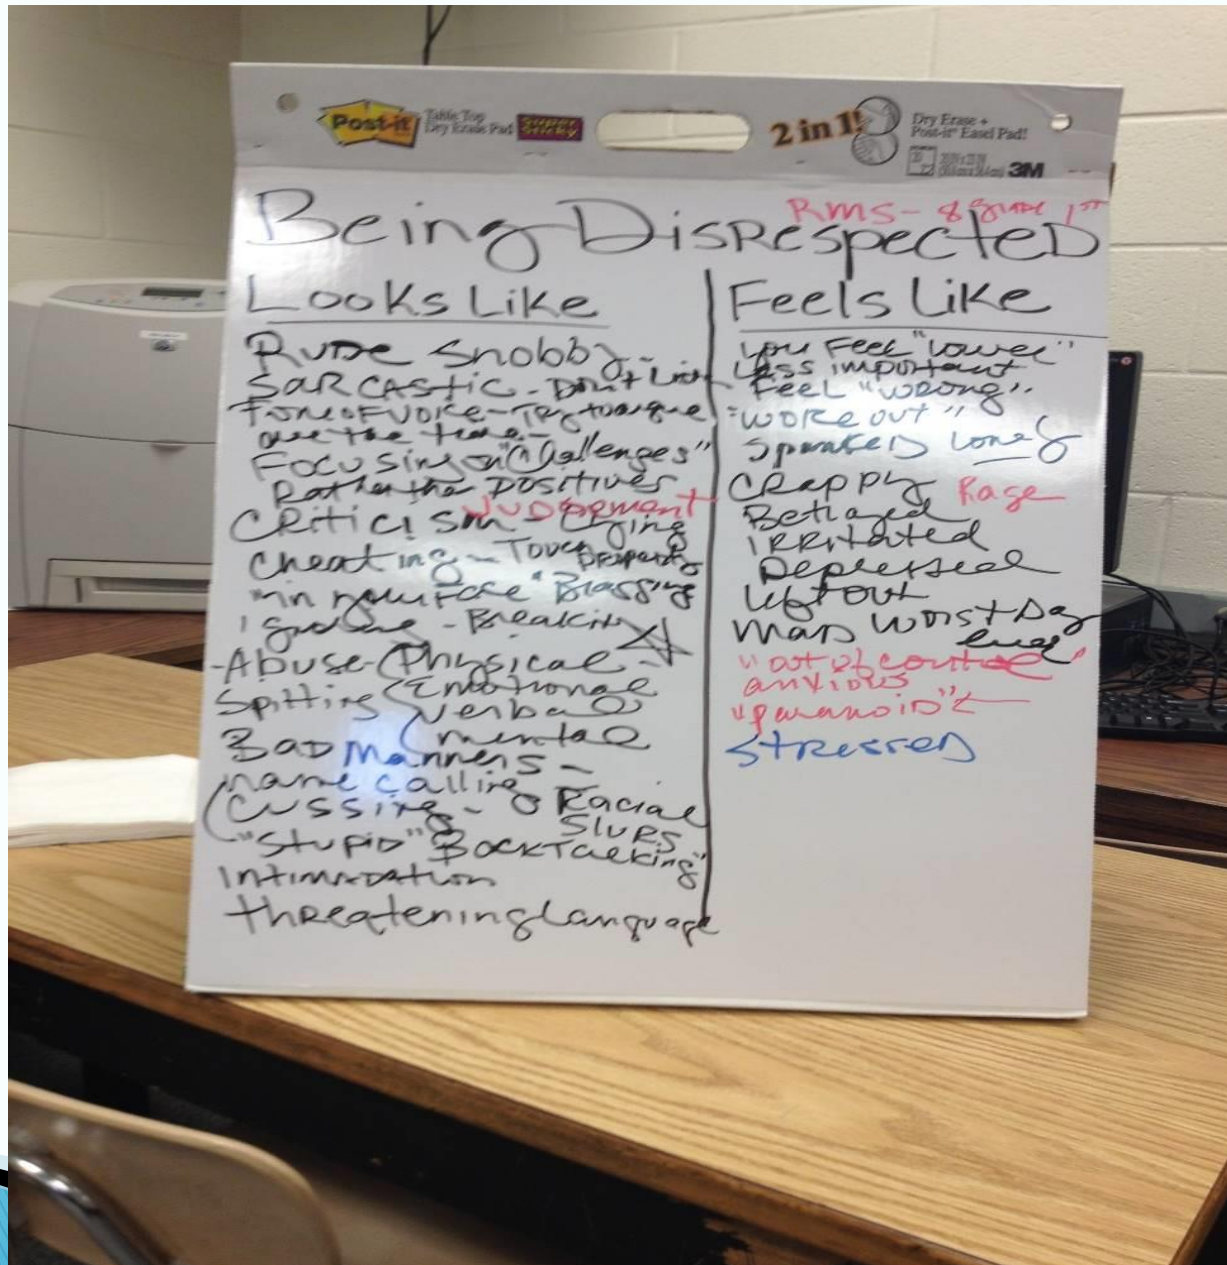 Post-it Table Top
Dry Erase Pad Super Sticky
2 in 1!
Dry Erase +
Post-it® Easel Pad!
3M
RMS - 8 grade 1st
Being DisRespecteD
Looks Like
RuDe Snobby -
SARCAStic - Don't
Tone of Voice - Try to argue
all the time -
Focusing on "Challenges"
Rather the positives
JuDgement
CRiticism - Lying
Cheating - Touch property
"in your Face"
Ignoring - Breaking
- Abuse - (Physical -
Spitting (Emotional
(verbal
(mental
BaD Manners -
name calling
(Cussing - Racial
SluRs
"StupiD" "BackTalking"
IntimaDation
thReatening Language
Feels Like
you Feel "lower"
Less important
Feel "wrong"
"WORe out"
lonely
CRappy Rage
BetRayed
iRRitated
Depressed
left out
MaD Worst Day
ever
"out of control"
anxious
"paranoiD"
StResseD